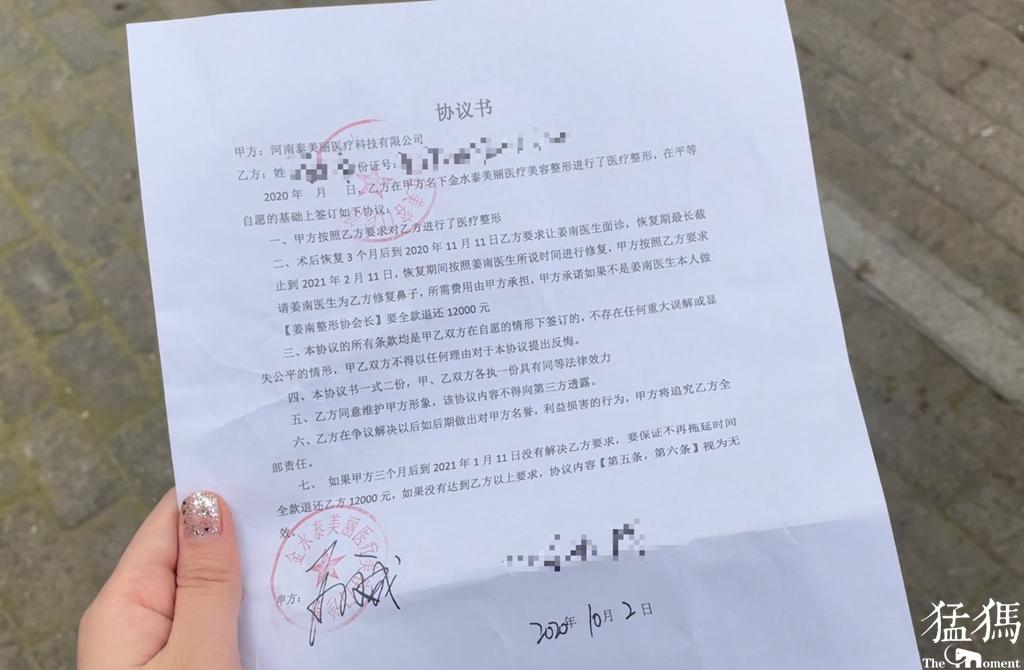 协议书
甲方：河南泰美丽医疗科技有限公司
乙方：姓 份证号：
2020 年 月 日，乙方在甲方名下金水泰美丽医疗美容整形进行了医疗整形，在平等
自愿的基础上签订如下协议：
一、甲方按照乙方要求对乙方进行了医疗整形
二、术后恢复 3 个月后到 2020 年 11 月 11 日乙方要求让姜南医生面诊，恢复期最长截
止到 2021 年 2 月 11 日，恢复期间按照姜南医生所说时间进行修复，甲方按照乙方要求
请姜南医生为乙方修复鼻子，所需费用由甲方承担，甲方承诺如果不是姜南医生本人做
【姜南整形协会长】要全款退还 12000 元
三、本协议的所有条款均是甲乙双方在自愿的情形下签订的，不存在任何重大误解或显
失公平的情形，甲乙双方不得以任何理由对于本协议提出反悔。
四、本协议书一式二份，甲、乙双方各执一份具有同等法律效力
五、乙方同意维护甲方形象，该协议内容不得向第三方透露。
六、乙方在争议解决以后如后期做出对甲方名誉，利益损害的行为，甲方将追究乙方全
部责任。
七、 如果甲方三个月后到 2021 年 1 月 11 日没有解决乙方要求，要保证不再拖延时间
全款退还乙方 12000 元，如果没有达到乙方以上要求，协议内容【第五条，第六条】视为无
效。
金水泰美丽医疗
甲方：
2020年 10月 2 日
猛犸
The Moment